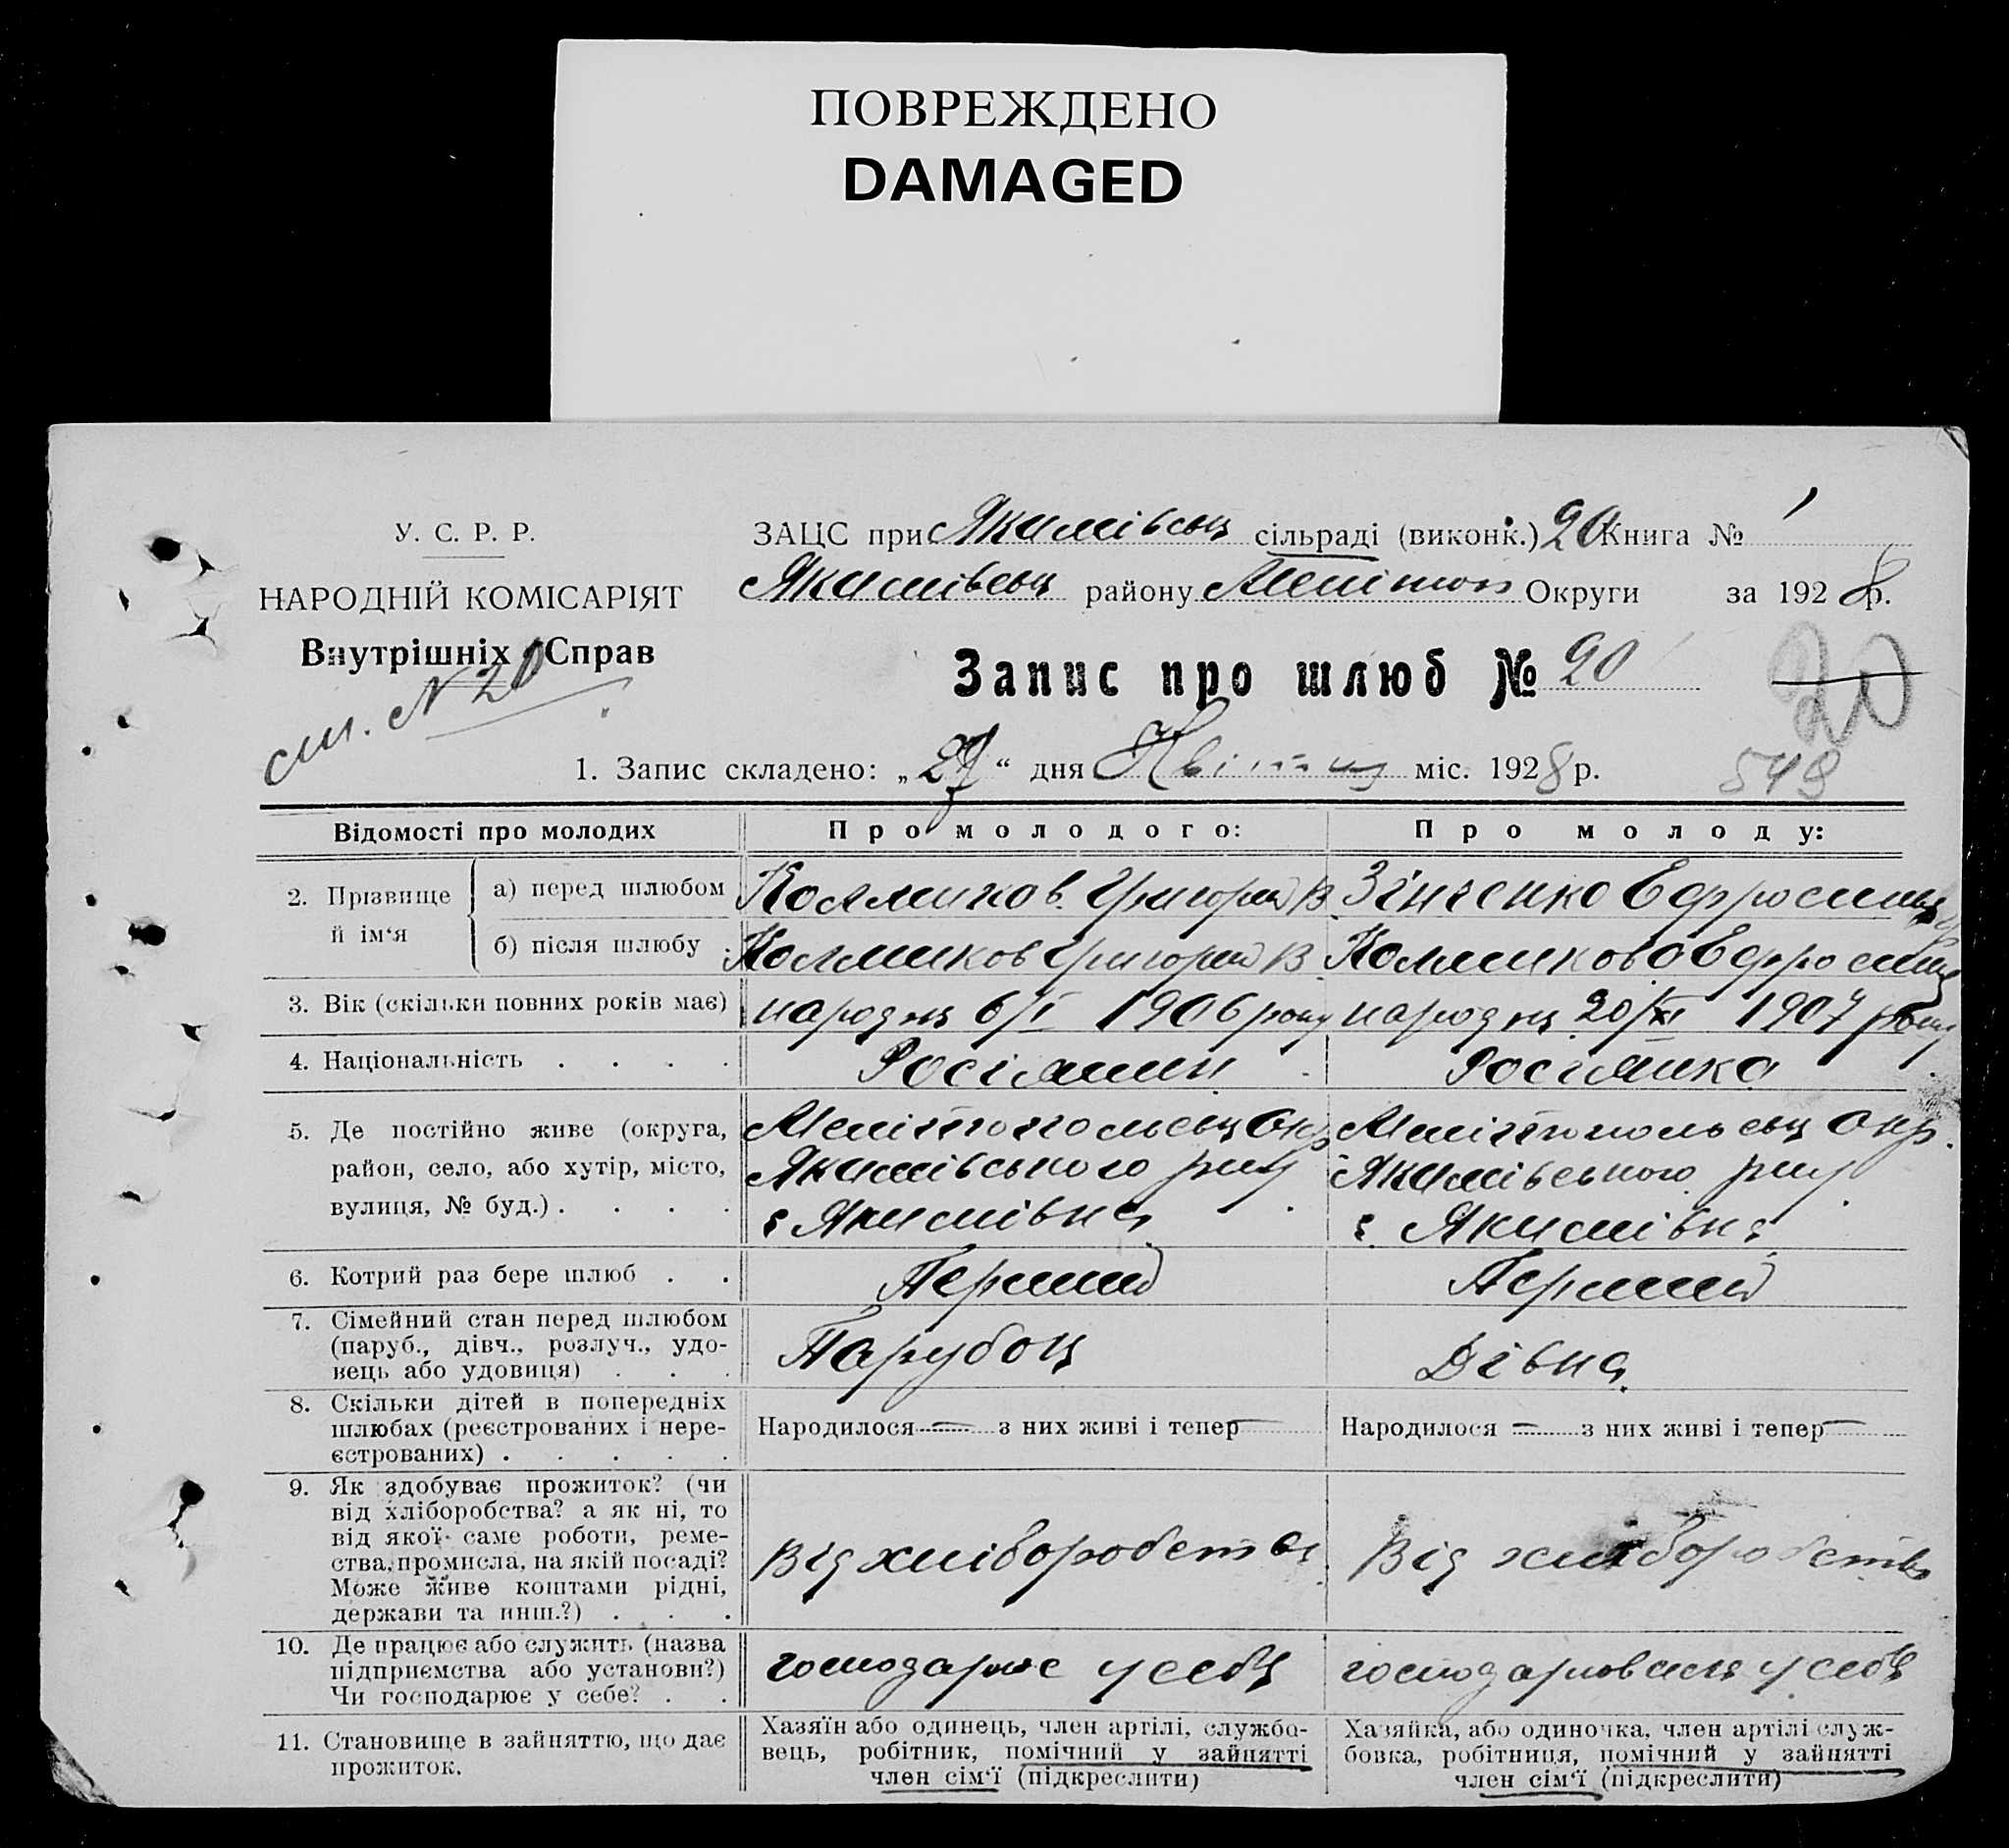 ПОВРЕЖДЕНО
DAMAGED
У. С. Р. Р.
НАРОДНІЙ КОМІСАРІЯТ
Внутрішніх Справ
см. N 20
ЗАЦС при Якимівськ сільраді (виконк.) 20 Книга № 1
Якимівськ району Меліտոп Округи за 1928 р.
Запис про шлюб № 20
20
1. Запис складено: „27“ дня Квітня міс. 1928 р.
548
Відомості про молодих
Про молодого:
Про молоду:
2. Прізвище й ім‘я
а) перед шлюбом
Колмиков Григорий В
Зінченко Ефросинья
б) після шлюбу
Колмиков Григорий В
Колмикова Ефросинья
3. Вік (скільки повних років має)
народця 6/I 1906 року
народця 20/XI 1907 року
4. Національність . . . .
Росіянин
Росіянка
5. Де постійно живе (округа,
район, село, або хутір, місто,
вулиця, № буд.) . . . .
Мелітопольськ Окр
Якимівського р-ну
с Якимівка
Мелітопольськ Окр.
Якимівського р-ну
с. Якимівка
6. Котрий раз бере шлюб . .
Перший
Перший
7. Сімейний стан перед шлюбом
(паруб., дівч., розлуч., удо-
вець або удовиця) . . .
Парубок
Дівка
8. Скільки дітей в попередніх
шлюбах (реєстрованих і нере-
єстрованих) . . . . .
Народилося — з них живі і тепер —
Народилося — з них живі і тепер —
9. Як здобуває прожиток? (чи
від хліборобства? а як ні, то
від якої саме роботи, реме-
ства, промисла, на якій посаді?
Може живе коштами рідні,
держави та инш.?) . . .
Від хліборобства
Від хліборобства
10. Де працює або служить (назва
підприємства або установи?)
Чи господарює у себе? . .
господарює у себе
у себе
11. Становище в зайняттю, що дає
прожиток.
Хазяїн або одинець, член артілі, службо-
вець, робітник, помічний у зайнятті
член сім‘ї (підкреслити)
Хазяйка, або одиночка, член артілі служ-
бовка, робітниця, помічний у зайнятті
член сім‘ї (підкреслити)